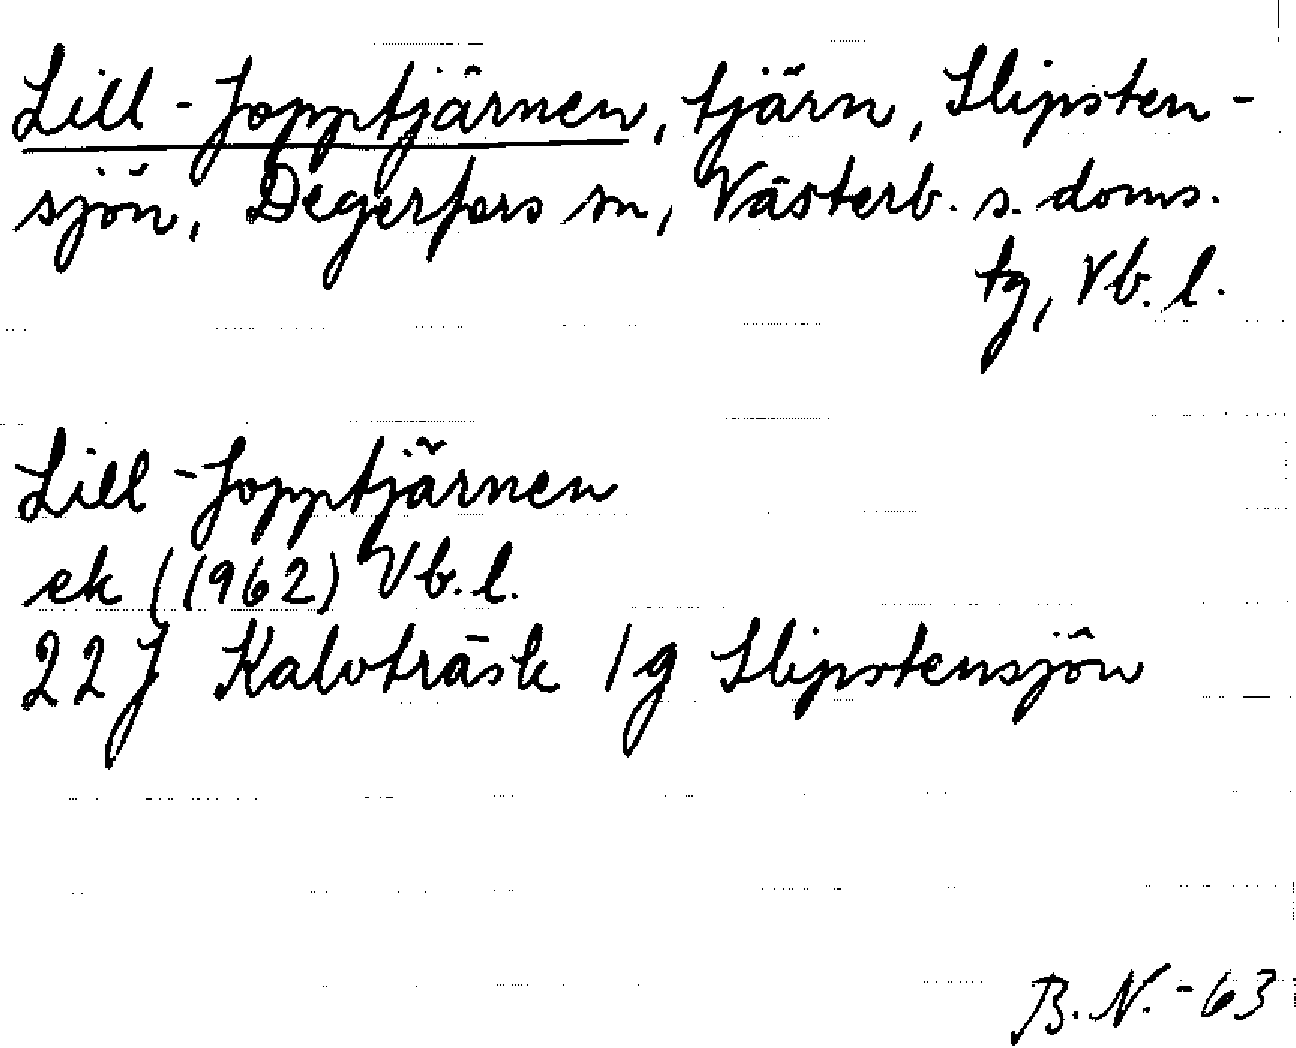 Lill-Jopptjärnen, tjärn, Slipsten-
sjön, Degerfors sn, Västerb. s. doms.
tg, Vb. l.
Lill-Jopptjärnen
ek (1962) Vb. l.
22 J Kalvträsk 1g Slipstensjön
B. N. -63